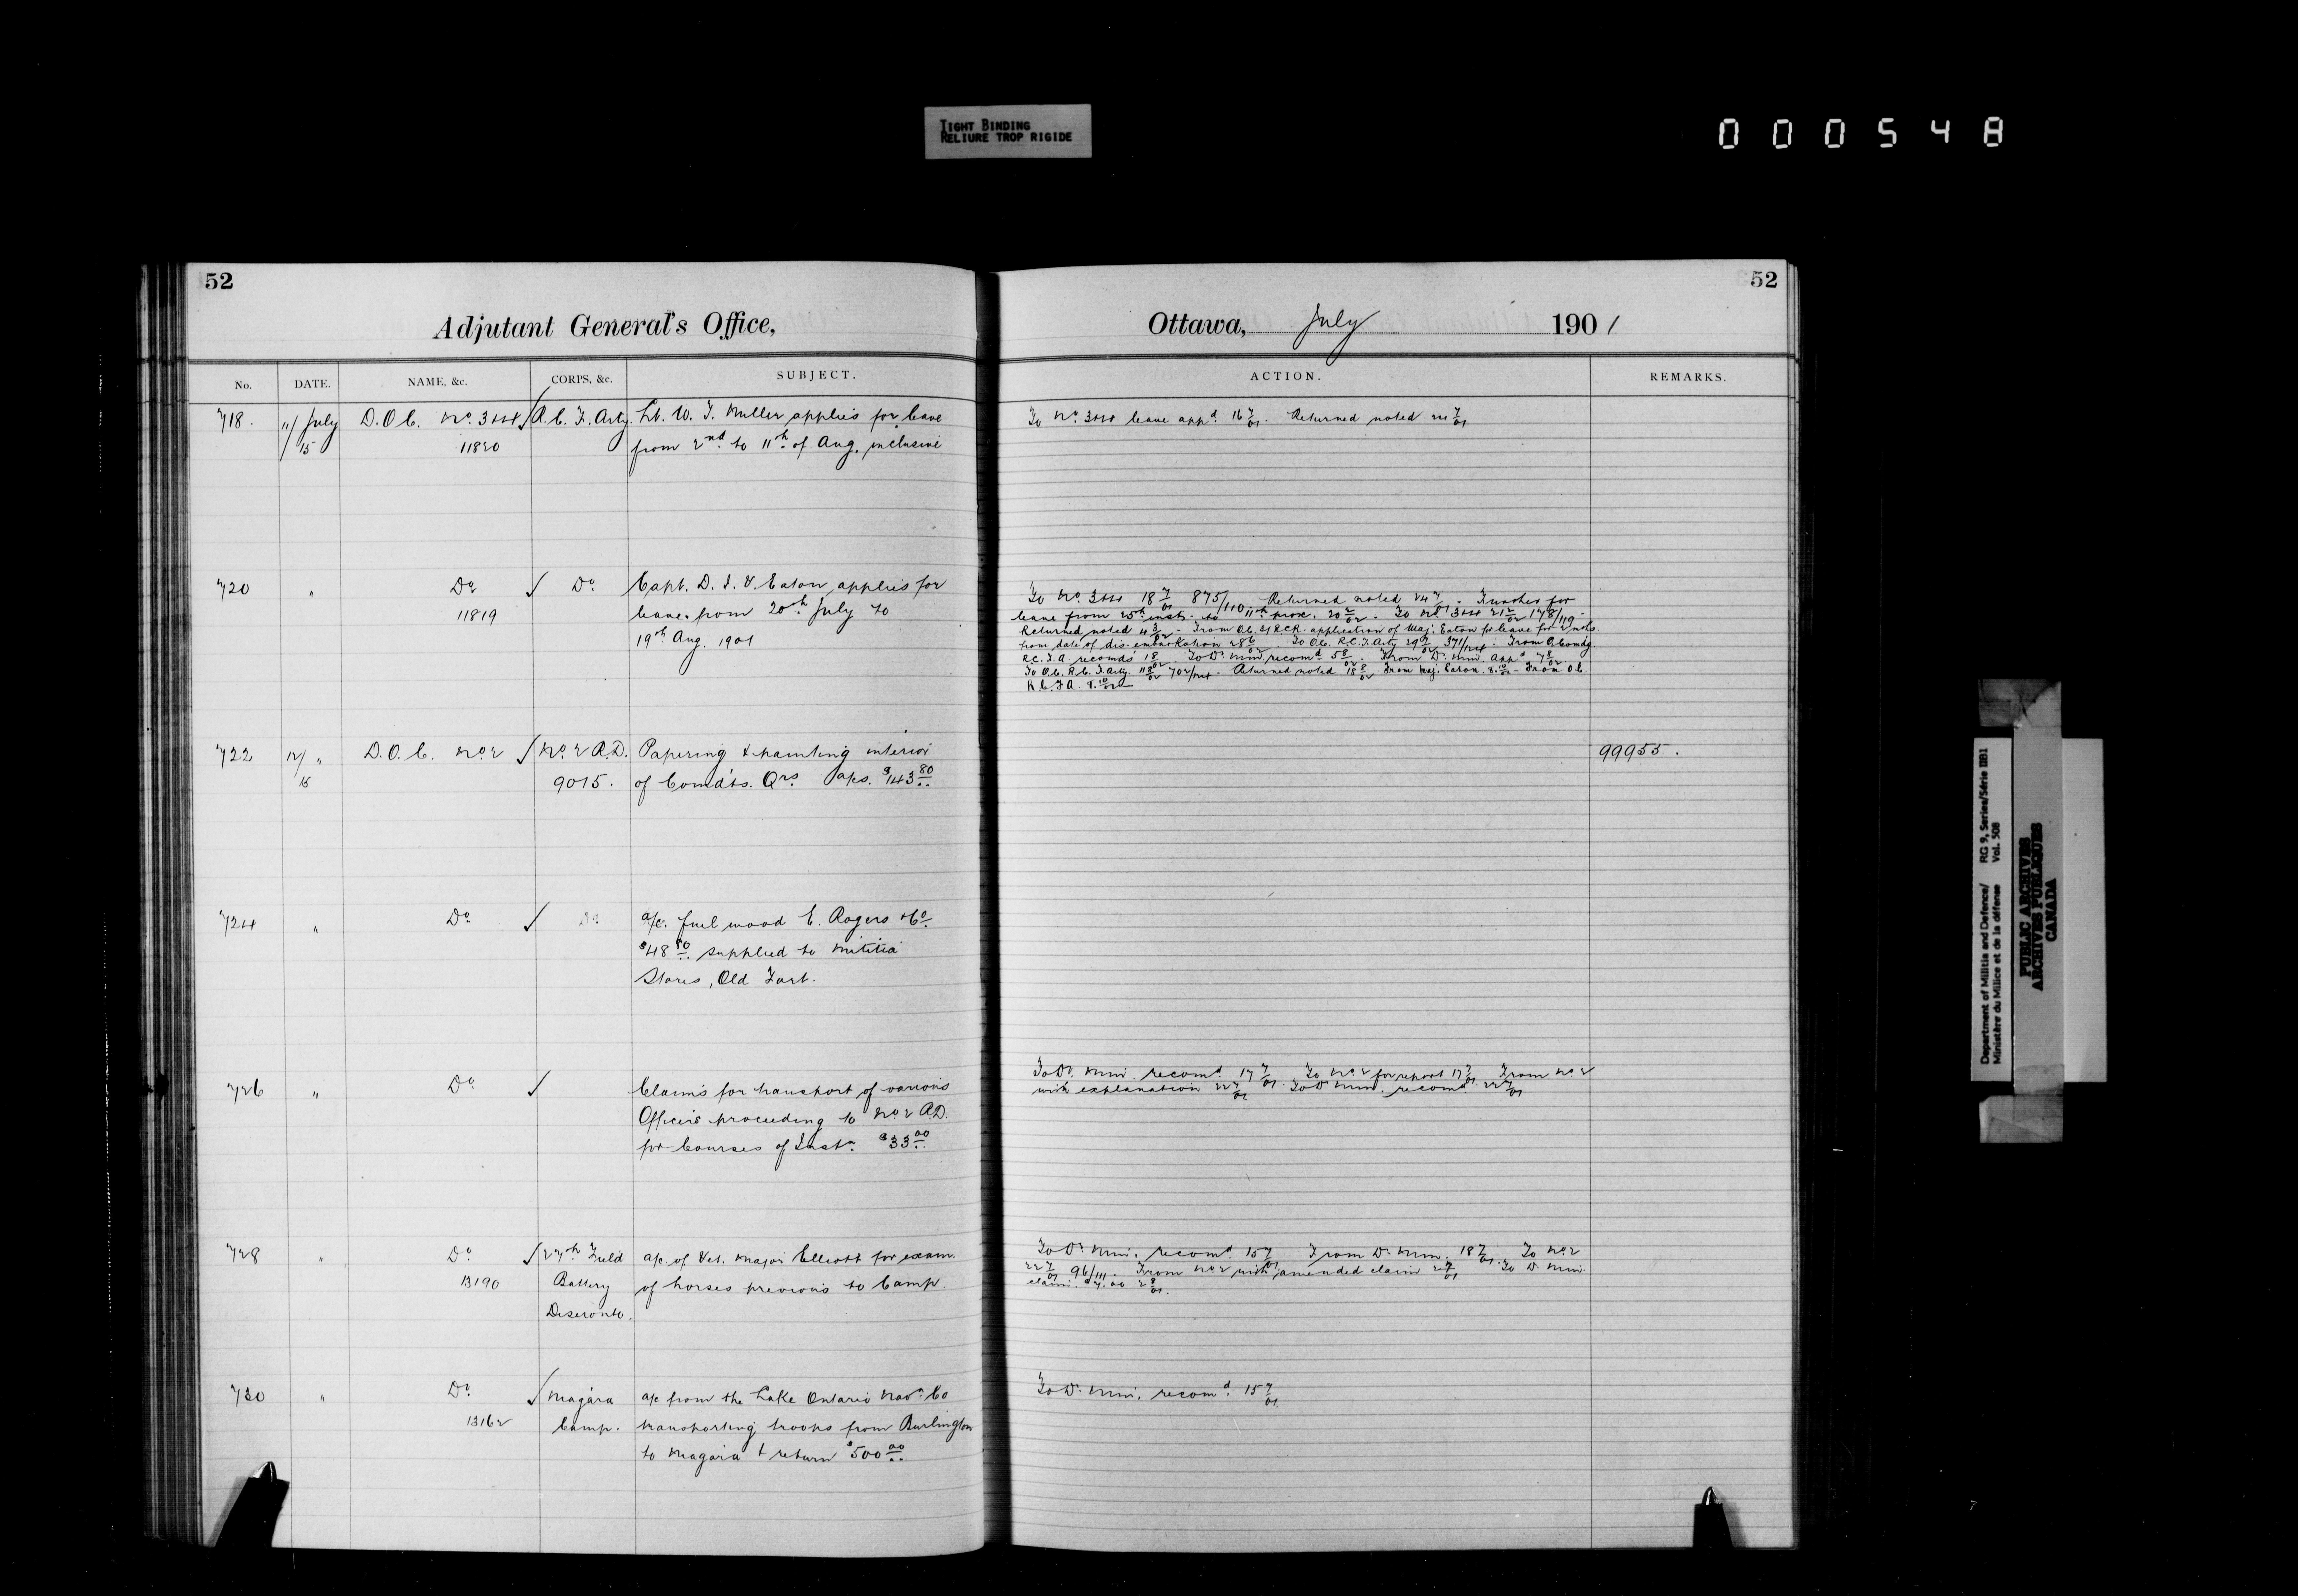 TIGHT BINDING
RELIURE TROP RIGIDE
000548
52
Adjutant General's Office,
No. DATE. NAME, &c. CORPS, &c. SUBJECT.
718. 11/July D.O.C. No. 3+4 R.C.F. Arty. Lt. W. T. Muller applies for leave
15 11820 from 2nd to 11th of Aug. inclusive
720 " Do Do Capt. D. I. V. Eaton applies for
11819 leave from 20th July to
19th Aug. 1901
722 12/ " D.O.C. No 2 No. 2 R.D. Papering & painting interior
15 9015. of Comdts. Qrs aps. $143.80
724 " Do Do a/c. fuel wood E. Rogers & Co
$48.50 supplied to Militia
Stores, Old Fort.
726 " Do Claims for transport of various
Officers proceeding to No 2 R.D.
for Courses of Instn. $33.00
728 " Do 27th Field a/c. of Vet. Major Elliott for exam.
13190 Battery of horses previous to Camp.
Deseronto.
730 " Do Niagara a/c from the Lake Ontario Navn. Co
13162 Camp. transporting troops from Burlington
to Niagara & return $500.00
52
Ottawa, July 1901
ACTION. REMARKS.
To No. 3+4 leave appd. 16/7/01. Returned noted 24/7/01
To No. 3+4 18/7/01 875/110 Returned noted 24/7/01. Further for
leave from 25th inst. to 11th prox. 20/2/02. To No. 3+4 21/2/02 178/119.
Returned noted 4/3/02. From application of Maj. Eaton for leave for 2 mos.
from date of dis-embarkation 28/6/02. To O.C. R.C.F. Arty 29/7/02 371/124. From O. Comdg.
R.C.F.A. recomds 1/8/02. To D. Min. recomd. 5/8/02. From D. Min. appd 7/8/02
To O.C. R.C.F. Arty. 11/8/02 Returned noted 15/8/02 From Maj. Eaton. From O.C.
R.C.F.A.
99955.
To D. Min. recomd. 17/7/01. To No. 2 for report 17/7/01 From No. 2
with explanation 22/7/01. To D. Min. recomd. 22/7/01
To D. Min. recomd. 15/7/01 From D. Min. 18/7/01. To No 2
22/7/01 96/111. From No 2 with amended claim To D. Min.
claim.
To D. Min. recomd. 15/7/01.
Department of Militia and Defence/ RG 9, Series/Série IIB1
Ministère du Milice et de la défense Vol. 508
PUBLIC ARCHIVES
ARCHIVES PUBLIQUES
CANADA